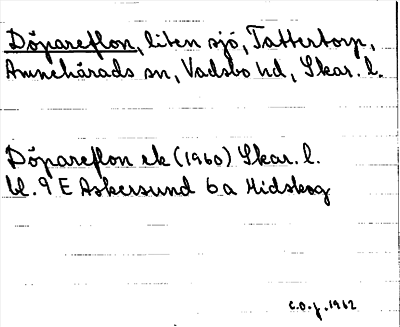 Döpareflon, liten sjö, Tattertorp,
Amnehärads sn, Vadsbo hd, Skar. l.
Döpareflon ek (1960) Skar. l.
bl. 9 E Askersund 6 a Midskog
C.O.J. 1962